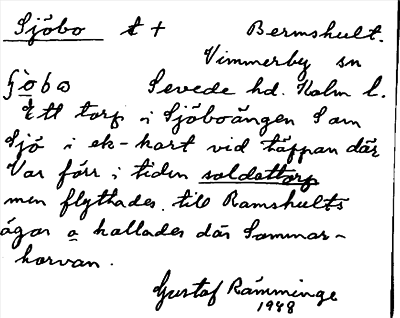 Sjöbo t + Bermshult.
Vimmerby sn
ʃòbo Sevede hd. Kalm l.
Ett torp i Sjöboängen Som
Sjö i ek-kart vid täppan där
Var förr i tiden soldattorp
men flyttades till Ramshults
ägor o kallades där Sommar-
korvan.
Gustaf Rämminge
1948